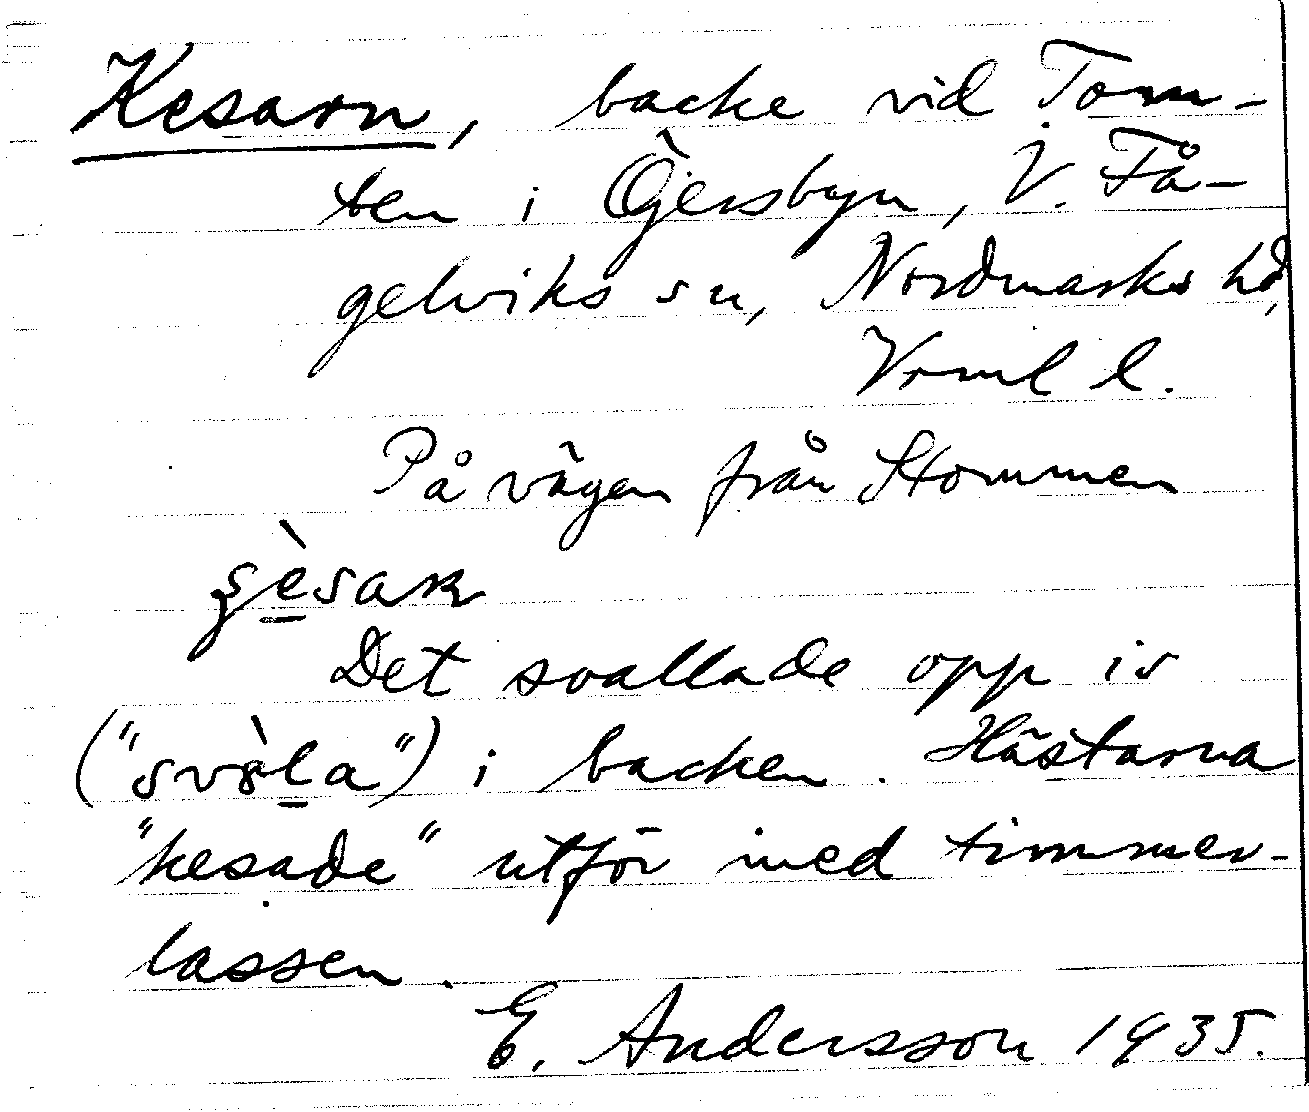 Kesarn, backe vid Tom-
ten i Öjersbyn, V. Få-
gelviks sn, Nordmarks hd,
Vrml l.
På vägen från Stommen
Det svallade opp is
i backen. Hästarna
"kesade" utför med timmer-
lassen.
E. Andersson 1935.